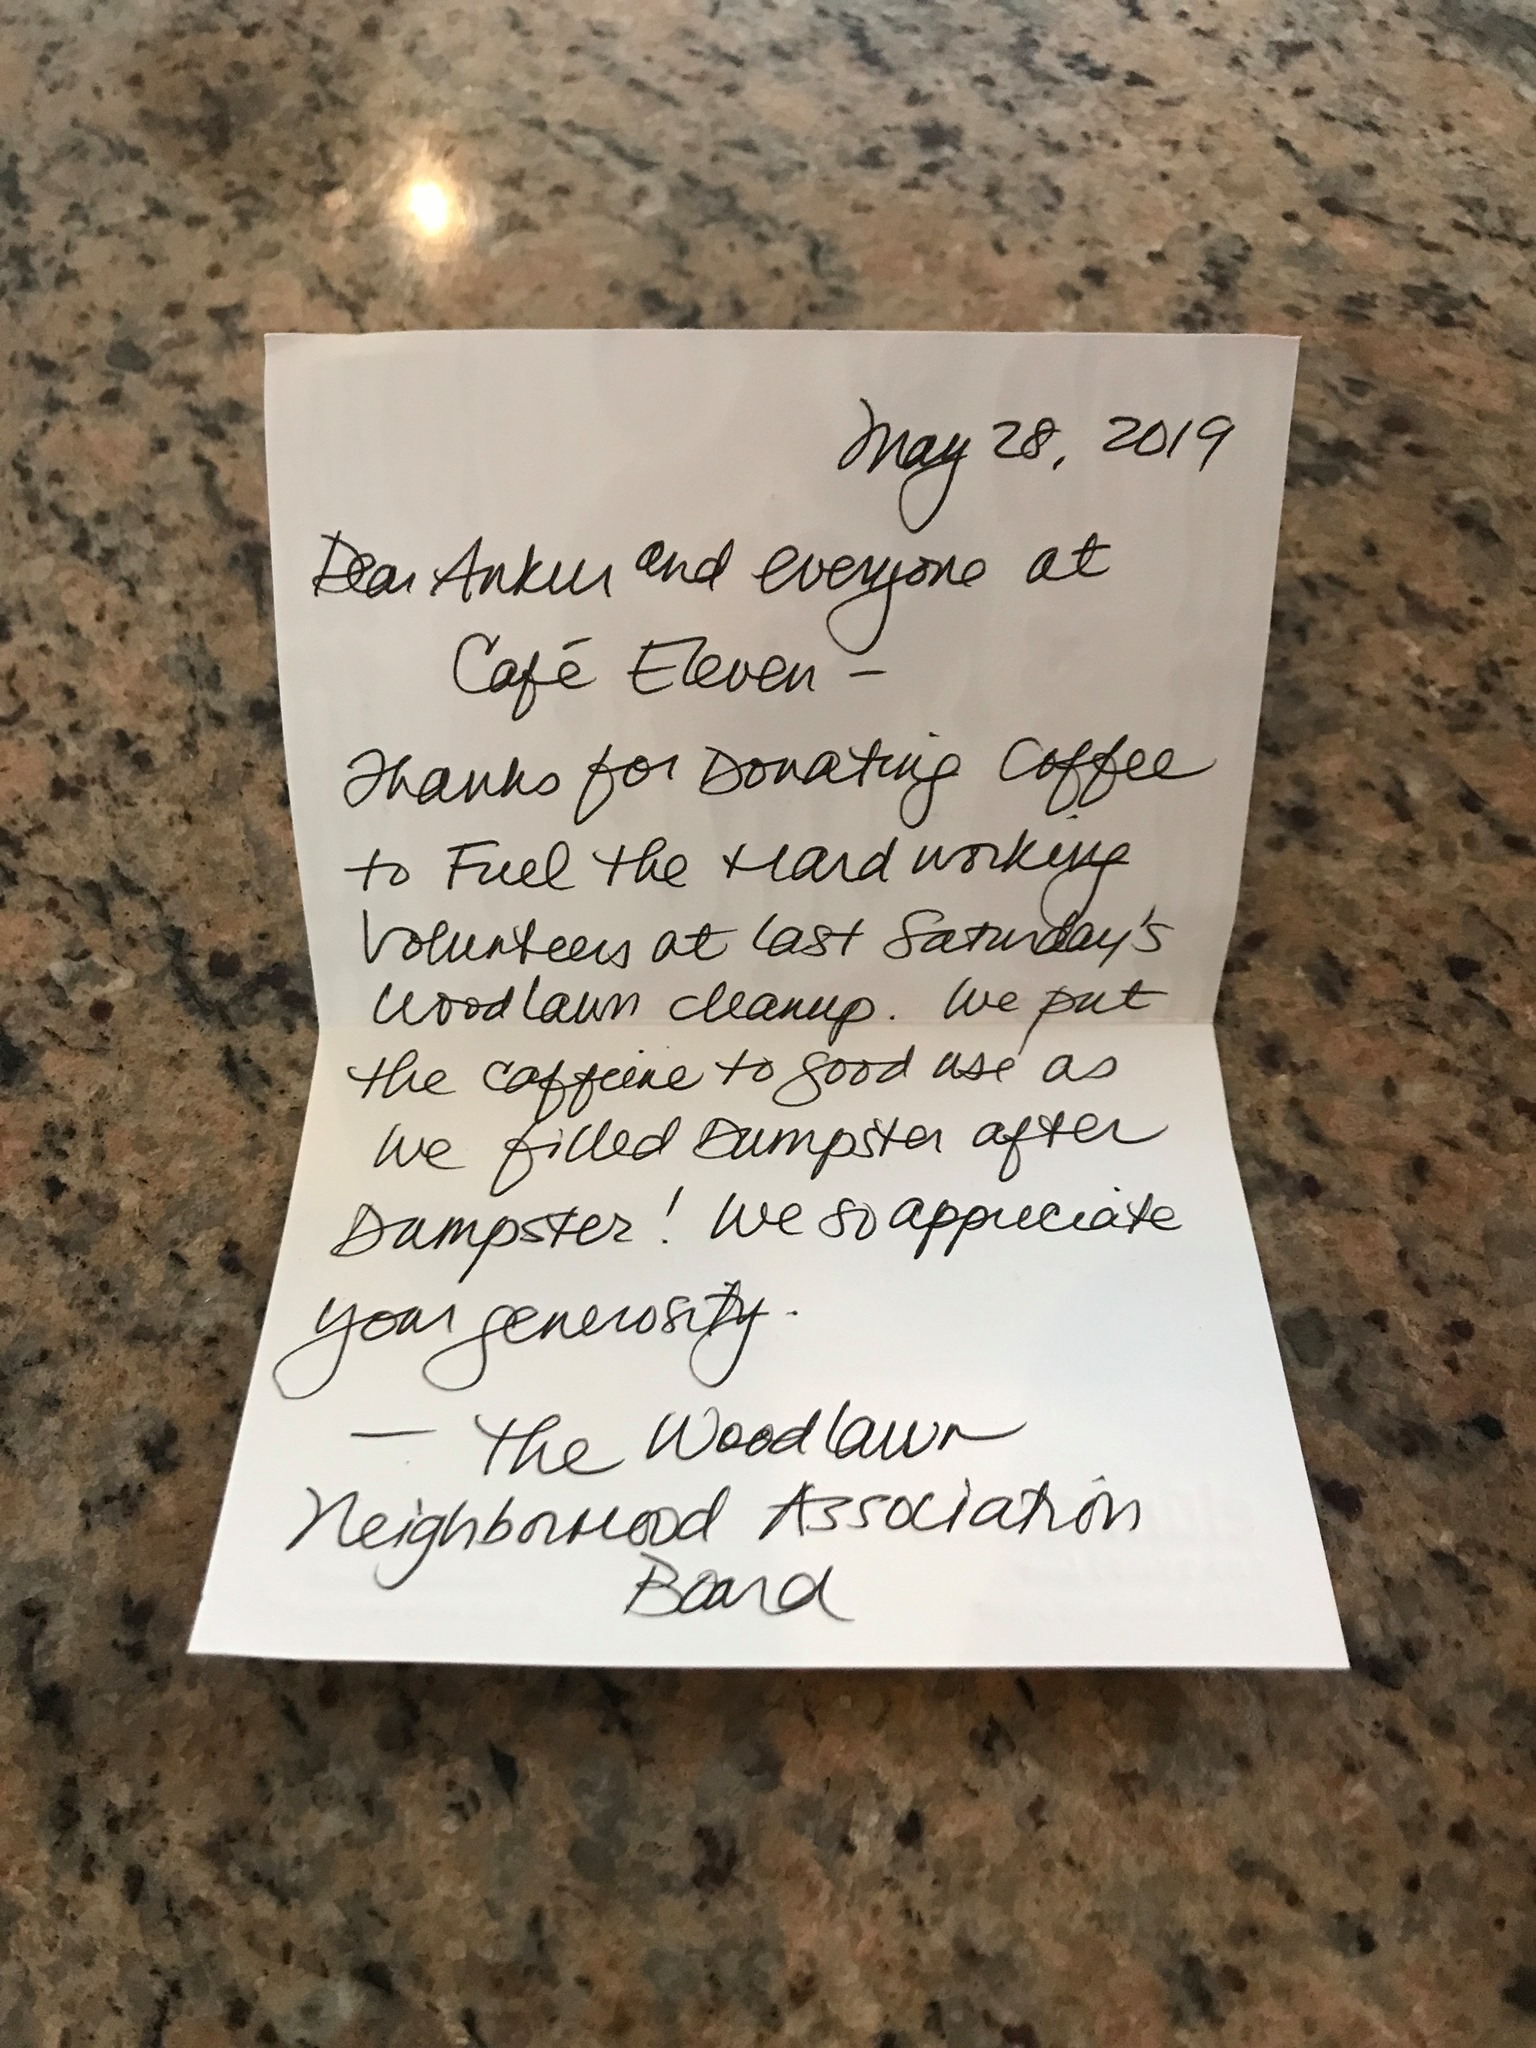 May 28, 2019
Dear Ankur and everyone at
Café Eleven –
Thanks for Donating Coffee
to Fuel the Hardworking
Volunteers at last Saturday's
Woodlawn cleanup. We put
the caffeine to good use as
we filled Dumpster after
Dumpster! We so appreciate
your generosity.
— The Woodlawn
Neighborhood Association
Board